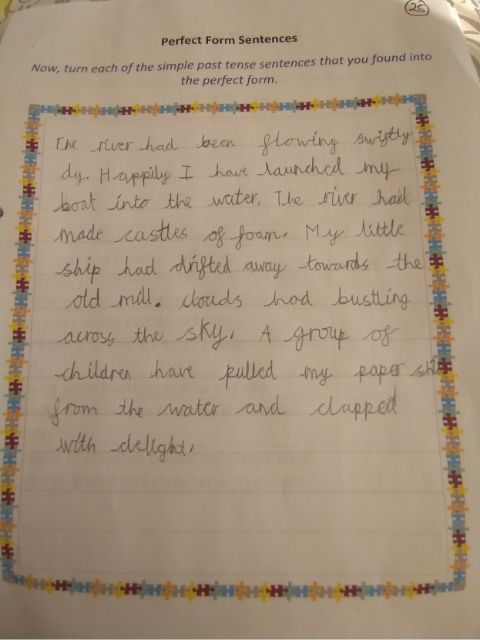 28
Perfect Form Sentences
Now, turn each of the simple past tense sentences that you found into
the perfect form.
The river had been flowing swiftly
dy. Happily I have launched my
boat into the water. The river had
made castles of foam. My little
ship had drifted away towards the
old mill. clouds had bustling
across the sky. A group of
children have pulled my paper
from the water and clapped
with delight.